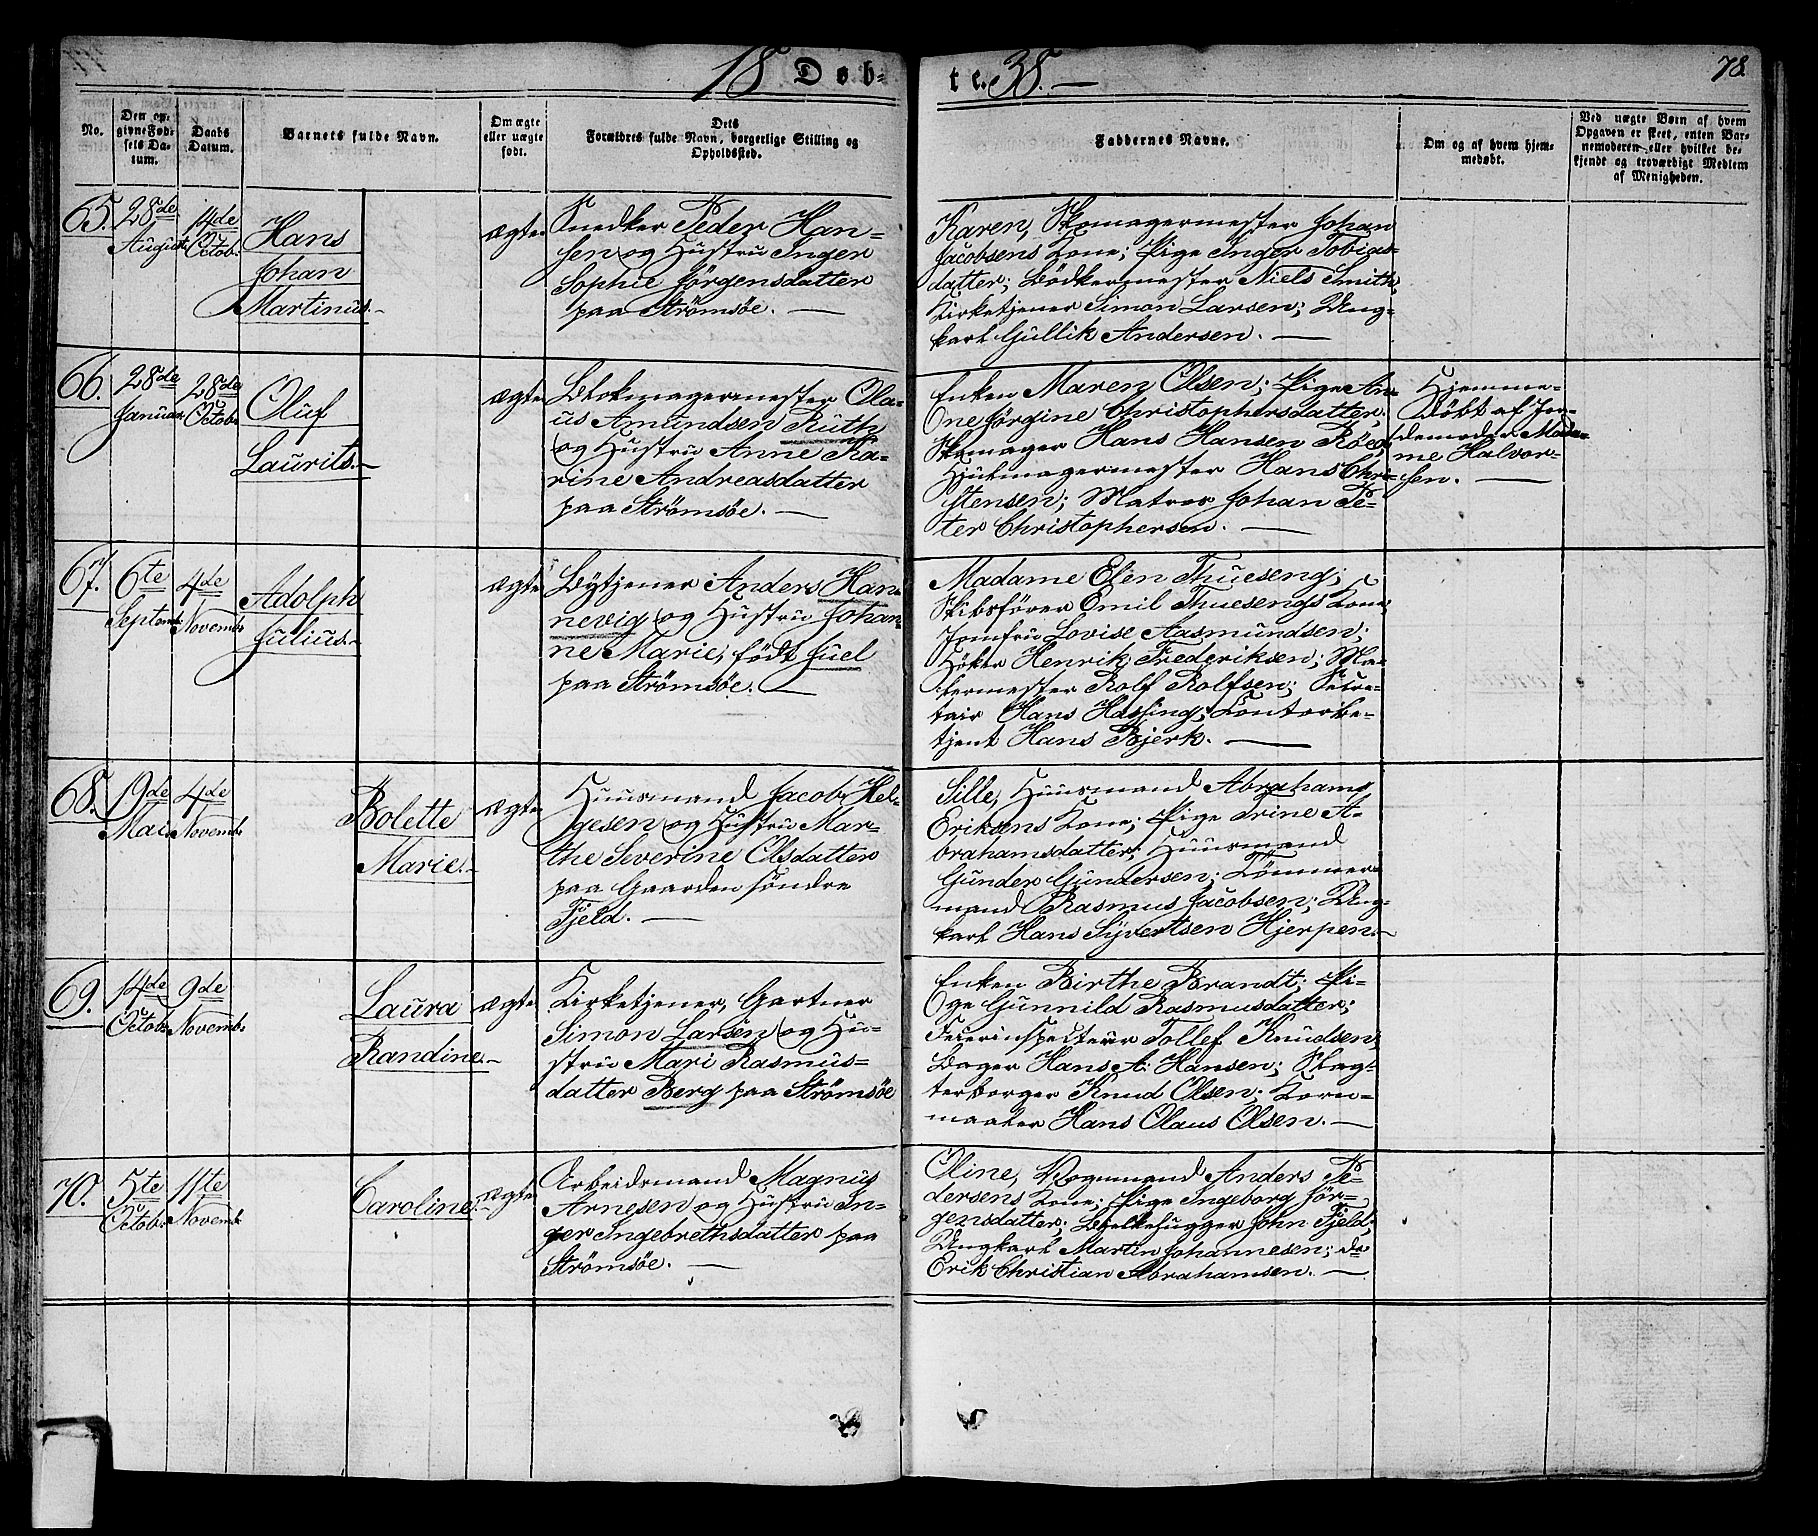 18 Døb-
te. 38. —
78.
No.
Den op-
givne Fød-
sels Da-
tum.
Daabs
Datum.
Barnets fulde Navn.
Om ægte
eller uægte
født.
Dets
Forældres fulde Navn, borgerlige Stilling og
Opholdssted.
Faddernes Navne.
Om og af hvem hjem-
medøbt.
Ved uægte Børn af hvem
Opgaven er skeet, enten Bar-
nemoderen eller hvilket be-
kjendt og troværdigt Medlem
af Menigheden.
65.
28de
August
14de
Octob.
Hans
Johan
Martinus.—
ægte
Snedker Peder Han-
sen og Hustru Inger
Sophie Jörgensdatter
paa Strömsöe. —
Karen, Skomagermester Johan
Jacobsens Kone; Pige Inger Tobias-
datter; Bödkermester Niels Smith,
Kirketjener Simon Larsen; Ung-
karl Gullik Andersen. —
66.
28de
Januar
28de
Octob.
Oluf
Laurits.—
ægte
Blokmagermester Ola-
us Amundsen Ruth
og Hustru Anne Ka-
rine Andreasdatter
paa Strömsöe. —
Enken Maren Olsen; Pige An-
ne Jörgine Christophersdatter,
Skomager Hans Hansen Röed,
Hjulmagermester Hans Chri-
stensen; Matros Johan Pe-
ter Christophersen. —
Hjemme-
döbt af Jor-
demoder Mada-
me Halvor-
sen. —
67.
6te
Septemb.
4de
Novemb.
Adolph
Julius.—
ægte
Bytjener Anders Han-
nevig og Hustru Johan-
ne Marie, födt Juel
paa Strömsöe. —
Madame Elen Thueseng;
Skibsförer Emil Thuesengs Kone;
Jomfru Lovise Aasmundsen;
Höker Henrik Frederiksen; Ma-
lermester Rolf Rolfsen; Secre-
tair Hans Hassing; Contorbe-
tjent Hans Bjerk. —
68.
19de
Mai
4de
Novemb.
Bolette
Marie.—
ægte
Huusmand Jacob Hel-
gesen og Hustru Mar-
the Severine Olsdatter
paa Gaarden söndre
Fjeld. —
Sille, Huusmand Abrahams
Eriksens Kone; Pige Trine A-
brahamsdatter; Huusmand
Gunder Gundersen; Tömmer-
mand Rasmus Jacobsen; Ung-
karl Hans Syvertsen Hjerpen.—
69.
14de
Octob.
9de
Novemb.
Laura
Randine.—
ægte
Kirketjener, Gartner
Simon Larsen og Hu-
stru Mari Rasmus-
datter Berg paa Strömsöe
Enken Birthe Brandt; Pi-
ge Gunnild Rasmusdatter;
Feierinspecteur Tollef Knudsen;
Bager Hans A. Hansen; Slag-
terborger Knud Olsen; Korn-
maaler Hans Olaus Olsen. —
70.
5te
Octob.
11te
Novemb.
Caroline.—
ægte
Arbeidsmand Magnus
Arnesen og Hustru In-
ger Ingebrethsdatter paa
Strömsöe. —
Oline, Vognmand Anders Pe-
dersens Kone; Pige Ingeborg Jör-
gensdatter; Bjelkehugger John Fjeld;
Ungkarl Martin Johannesen; do
Erik Christian Abrahamsen. —